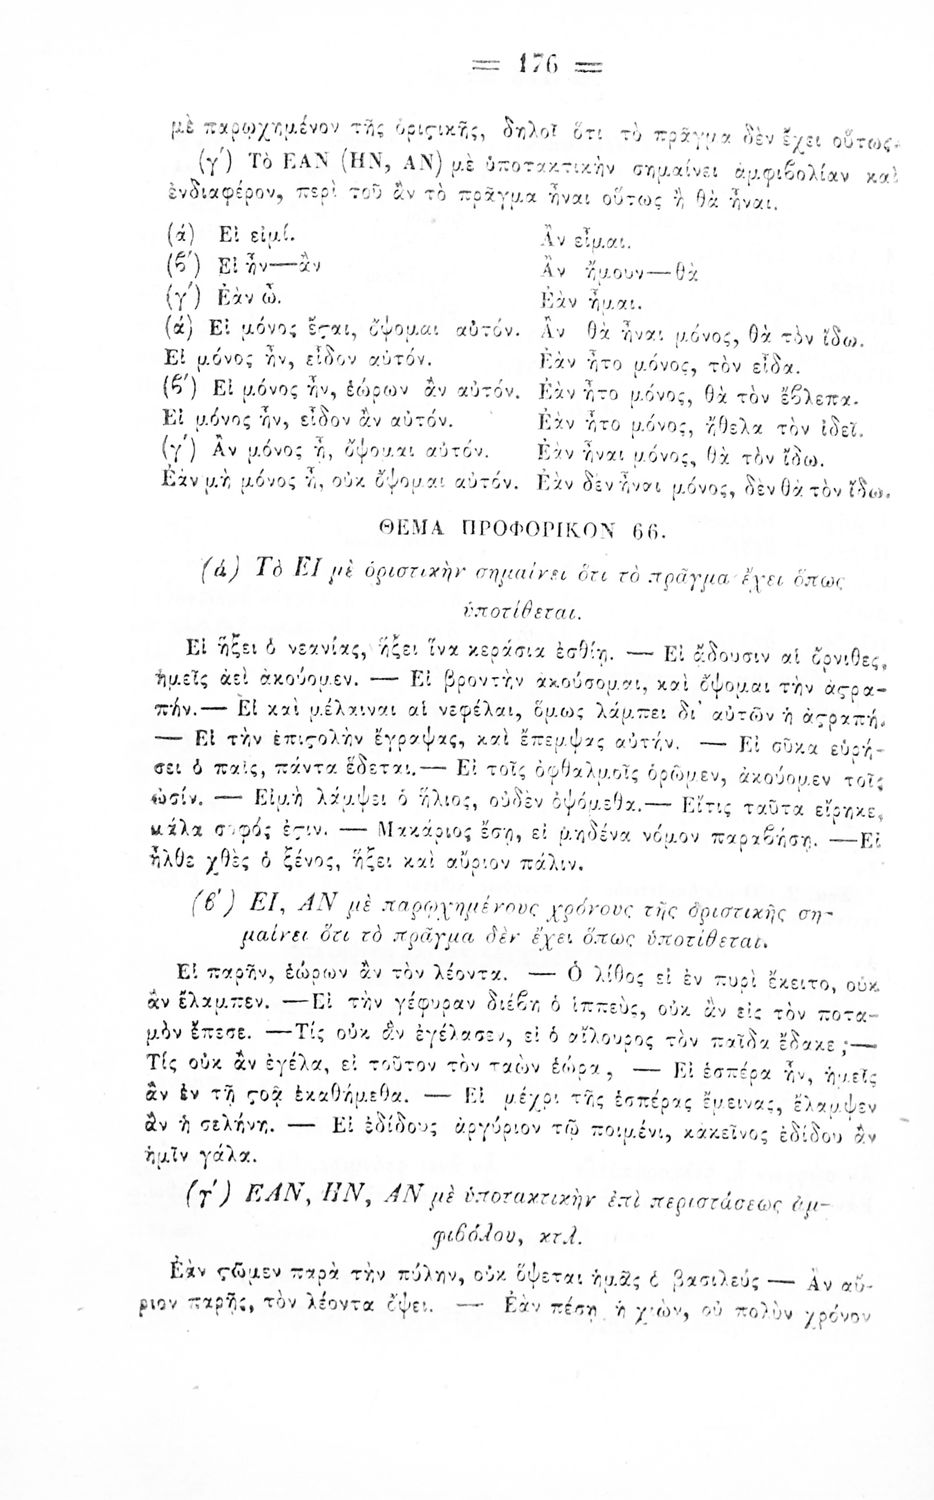 = 176 =
μὲ παρῳχημένον τῆς ὁριϛικῆς, δηλοῖ ὅτι τὸ πρᾶγμα δὲν ἔχει οὕτως.
(γ΄) Τὸ ΕΑΝ (ΗΝ, ΑΝ) μὲ ὑποτακτικὴν σημαίνει ἀμφιβολίαν καὶ
ἐνδιαφέρον, περὶ τοῦ ἂν τὸ πρᾶγμα ἦναι οὕτως ἢ θὰ ἦναι.
(ά) Εἰ εἰμί. Ἂν εἶμαι.
(β΄) Εἰ ἦν—ἂν Ἂν ἤμουν—θὰ
(γ΄) Ἐὰν ὦ. Ἐὰν ἦμαι.
(ά) Εἰ μόνος ἔϛαι, ὄψομαι αὐτόν. Ἂν θὰ ἦναι μόνος, θὰ τὸν ἴδω.
Εἰ μόνος ἦν, εἶδον αὐτόν. Ἐὰν ἦτο μόνος, τὸν εἶδα.
(β΄) Εἰ μόνος ἦν, ἑώρων ἂν αὐτόν. Ἐὰν ἦτο μόνος, θὰ τὸν ἔβλεπα.
Εἰ μόνος ἦν, εἶδον ἂν αὐτόν. Ἐὰν ἦτο μόνος, ἤθελα τὸν ἰδεῖ.
(γ΄) Ἂν μόνος ᾖ, ὄψομαι αὐτόν. Ἐὰν ἦναι μόνος, θὰ τὸν ἴδω.
Ἐὰν μὴ μόνος ᾖ, οὐκ ὄψομαι αὐτόν. Ἐὰν δὲν ἦναι μόνος, δὲν θὰ τὸν ἴδω.
ΘΕΜΑ ΠΡΟΦΟΡΙΚΟΝ 66.
(ά) Τὸ ΕΙ μὲ ὁριστικὴν σημαίνει ὅτι τὸ πρᾶγμα ἔχει ὅπως
ὑποτίθεται.
Εἰ ἥξει ὁ νεανίας, ἥξει ἵνα κεράσια ἐσθίῃ. — Εἰ ᾄδουσιν αἱ ὄρνιθες,
ἡμεῖς ἀεὶ ἀκούομεν. — Εἰ βροντὴν ἀκούσομαι, καὶ ὄψομαι τὴν ἀϛρα-
πήν.— Εἰ καὶ μέλαιναι αἱ νεφέλαι, ὅμως λάμπει δι᾽ αὐτῶν ἡ ἀϛραπή.
— Εἰ τὴν ἐπιϛολὴν ἔγραψας, καὶ ἔπεμψας αὐτήν. — Εἰ σῦκα εὑρή-
σει ὁ παῖς, πάντα ἔδεται.— Εἰ τοῖς ὀφθαλμοῖς ὁρῶμεν, ἀκούομεν τοῖς
ὠσίν. — Εἰμὴ λάμψει ὁ ἥλιος, οὐδὲν ὀψόμεθα.— Εἴτις ταῦτα εἴρηκε,
μάλα σοφός ἐϛιν. — Μακάριος ἔσῃ, εἰ μηδένα νόμον παραβήσῃ. —Εἰ
ἦλθε χθὲς ὁ ξένος, ἥξει καὶ αὔριον πάλιν.
(β΄) ΕΙ, ΑΝ μὲ παρῳχημένους χρόνους τῆς ὁριστικῆς ση-
μαίνει ὅτι τὸ πρᾶγμα δὲν ἔχει ὅπως ὑποτίθεται.
Εἰ παρῆν, ἑώρων ἂν τὸν λέοντα. — Ὁ λίθος εἰ ἐν πυρὶ ἔκειτο, οὐκ
ἂν ἔλαμπεν. —Εἰ τὴν γέφυραν διέβη ὁ ἱππεὺς, οὐκ ἂν εἰς τὸν ποτα-
μὸν ἔπεσε. —Τίς οὐκ ἂν ἐγέλασεν, εἰ ὁ αἴλουρος τὸν παῖδα ἔδακε ;—
Τίς οὐκ ἂν ἐγέλα, εἰ τοῦτον τὸν ταὼν ἑώρα, — Εἰ ἑσπέρα ἦν, ἡμεῖς
ἂν ἐν τῇ ϛοᾷ ἐκαθήμεθα. — Εἰ μέχρι τῆς ἑσπέρας ἔμεινας, ἔλαμψεν
ἂν ἡ σελήνη. — Εἰ ἐδίδους ἀργύριον τῷ ποιμένι, κἀκεῖνος ἐδίδου ἂν
ἡμῖν γάλα.
(γ΄) ΕΑΝ, ΗΝ, ΑΝ μὲ ὑποτακτικὴν ἐπὶ περιστάσεως ἀμ-
φιβόλου, κτλ.
Ἐὰν ϛῶμεν παρὰ τὴν πύλην, οὐκ ὄψεται ἡμᾶς ὁ βασιλεύς — Ἂν αὔ-
ριον παρῇς, τὸν λέοντα ὄψει. — Ἐὰν πέσῃ ἡ χιὼν, οὐ πολὺν χρόνον